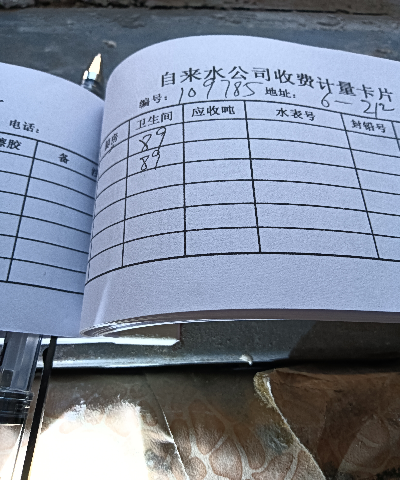 电话：
备
自来水公司收费计量卡片
编号：109785 地址：6-212
卫生间 应收吨 水表号 封铅号
89
89